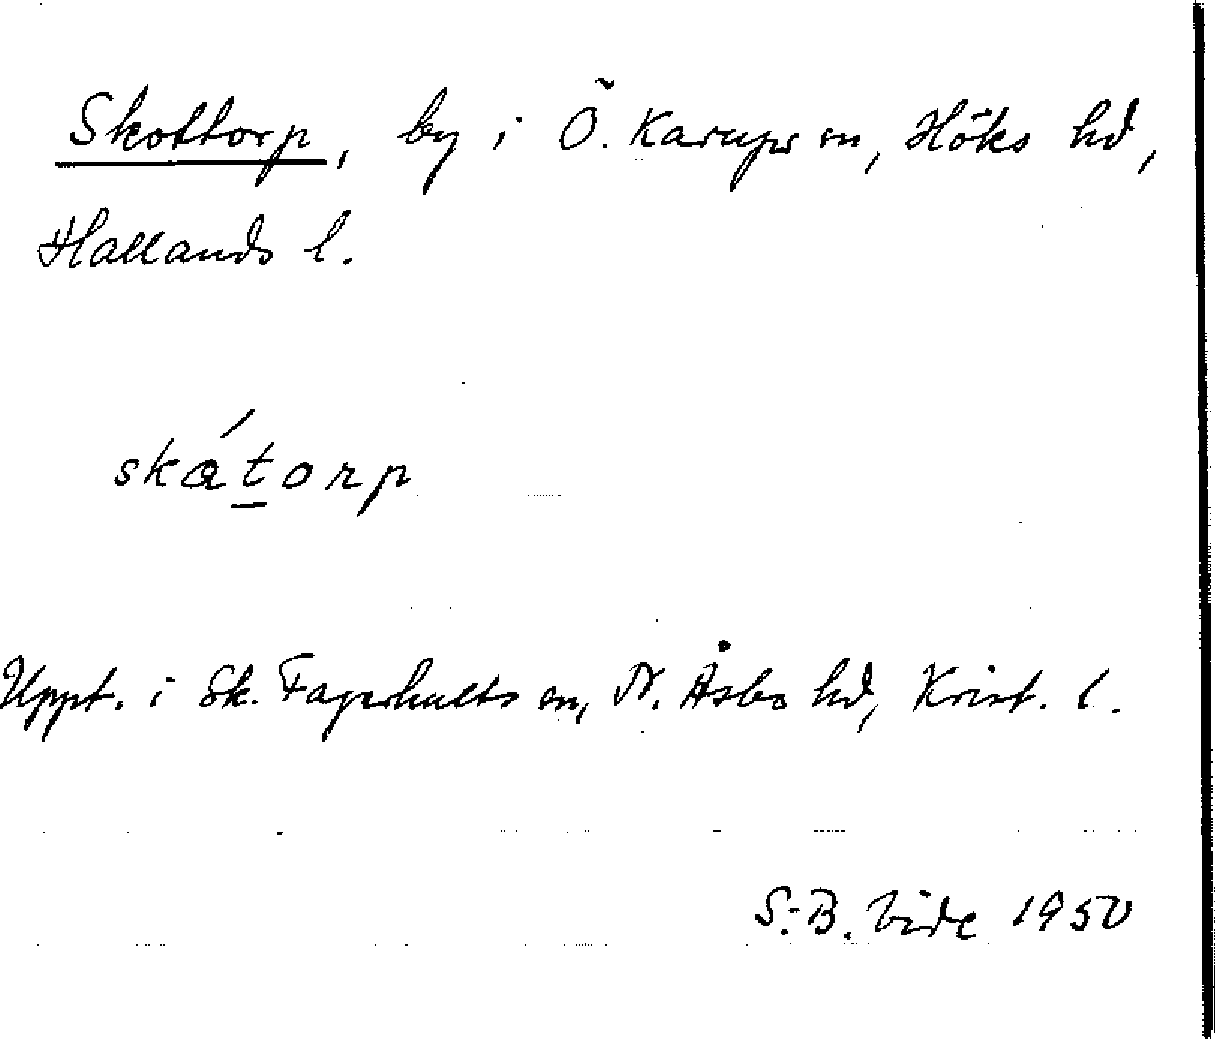 Skottorp, by i Ö. Karups sn, Höks hd,
Hallands l.
skátorp
Uppt. i Sk. Fagerhults sn, N. Åsbo hd, Krist. l.
S.-B. Vide 1950